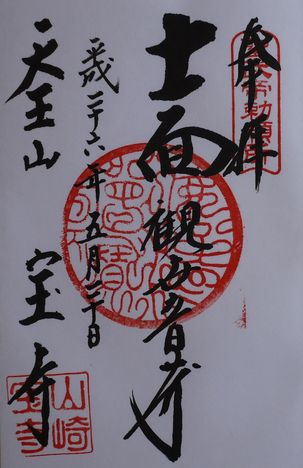 奉拝
十一面観世音菩薩
平成二十六年五月二十日
天王山 宝寺
山崎
宝寺